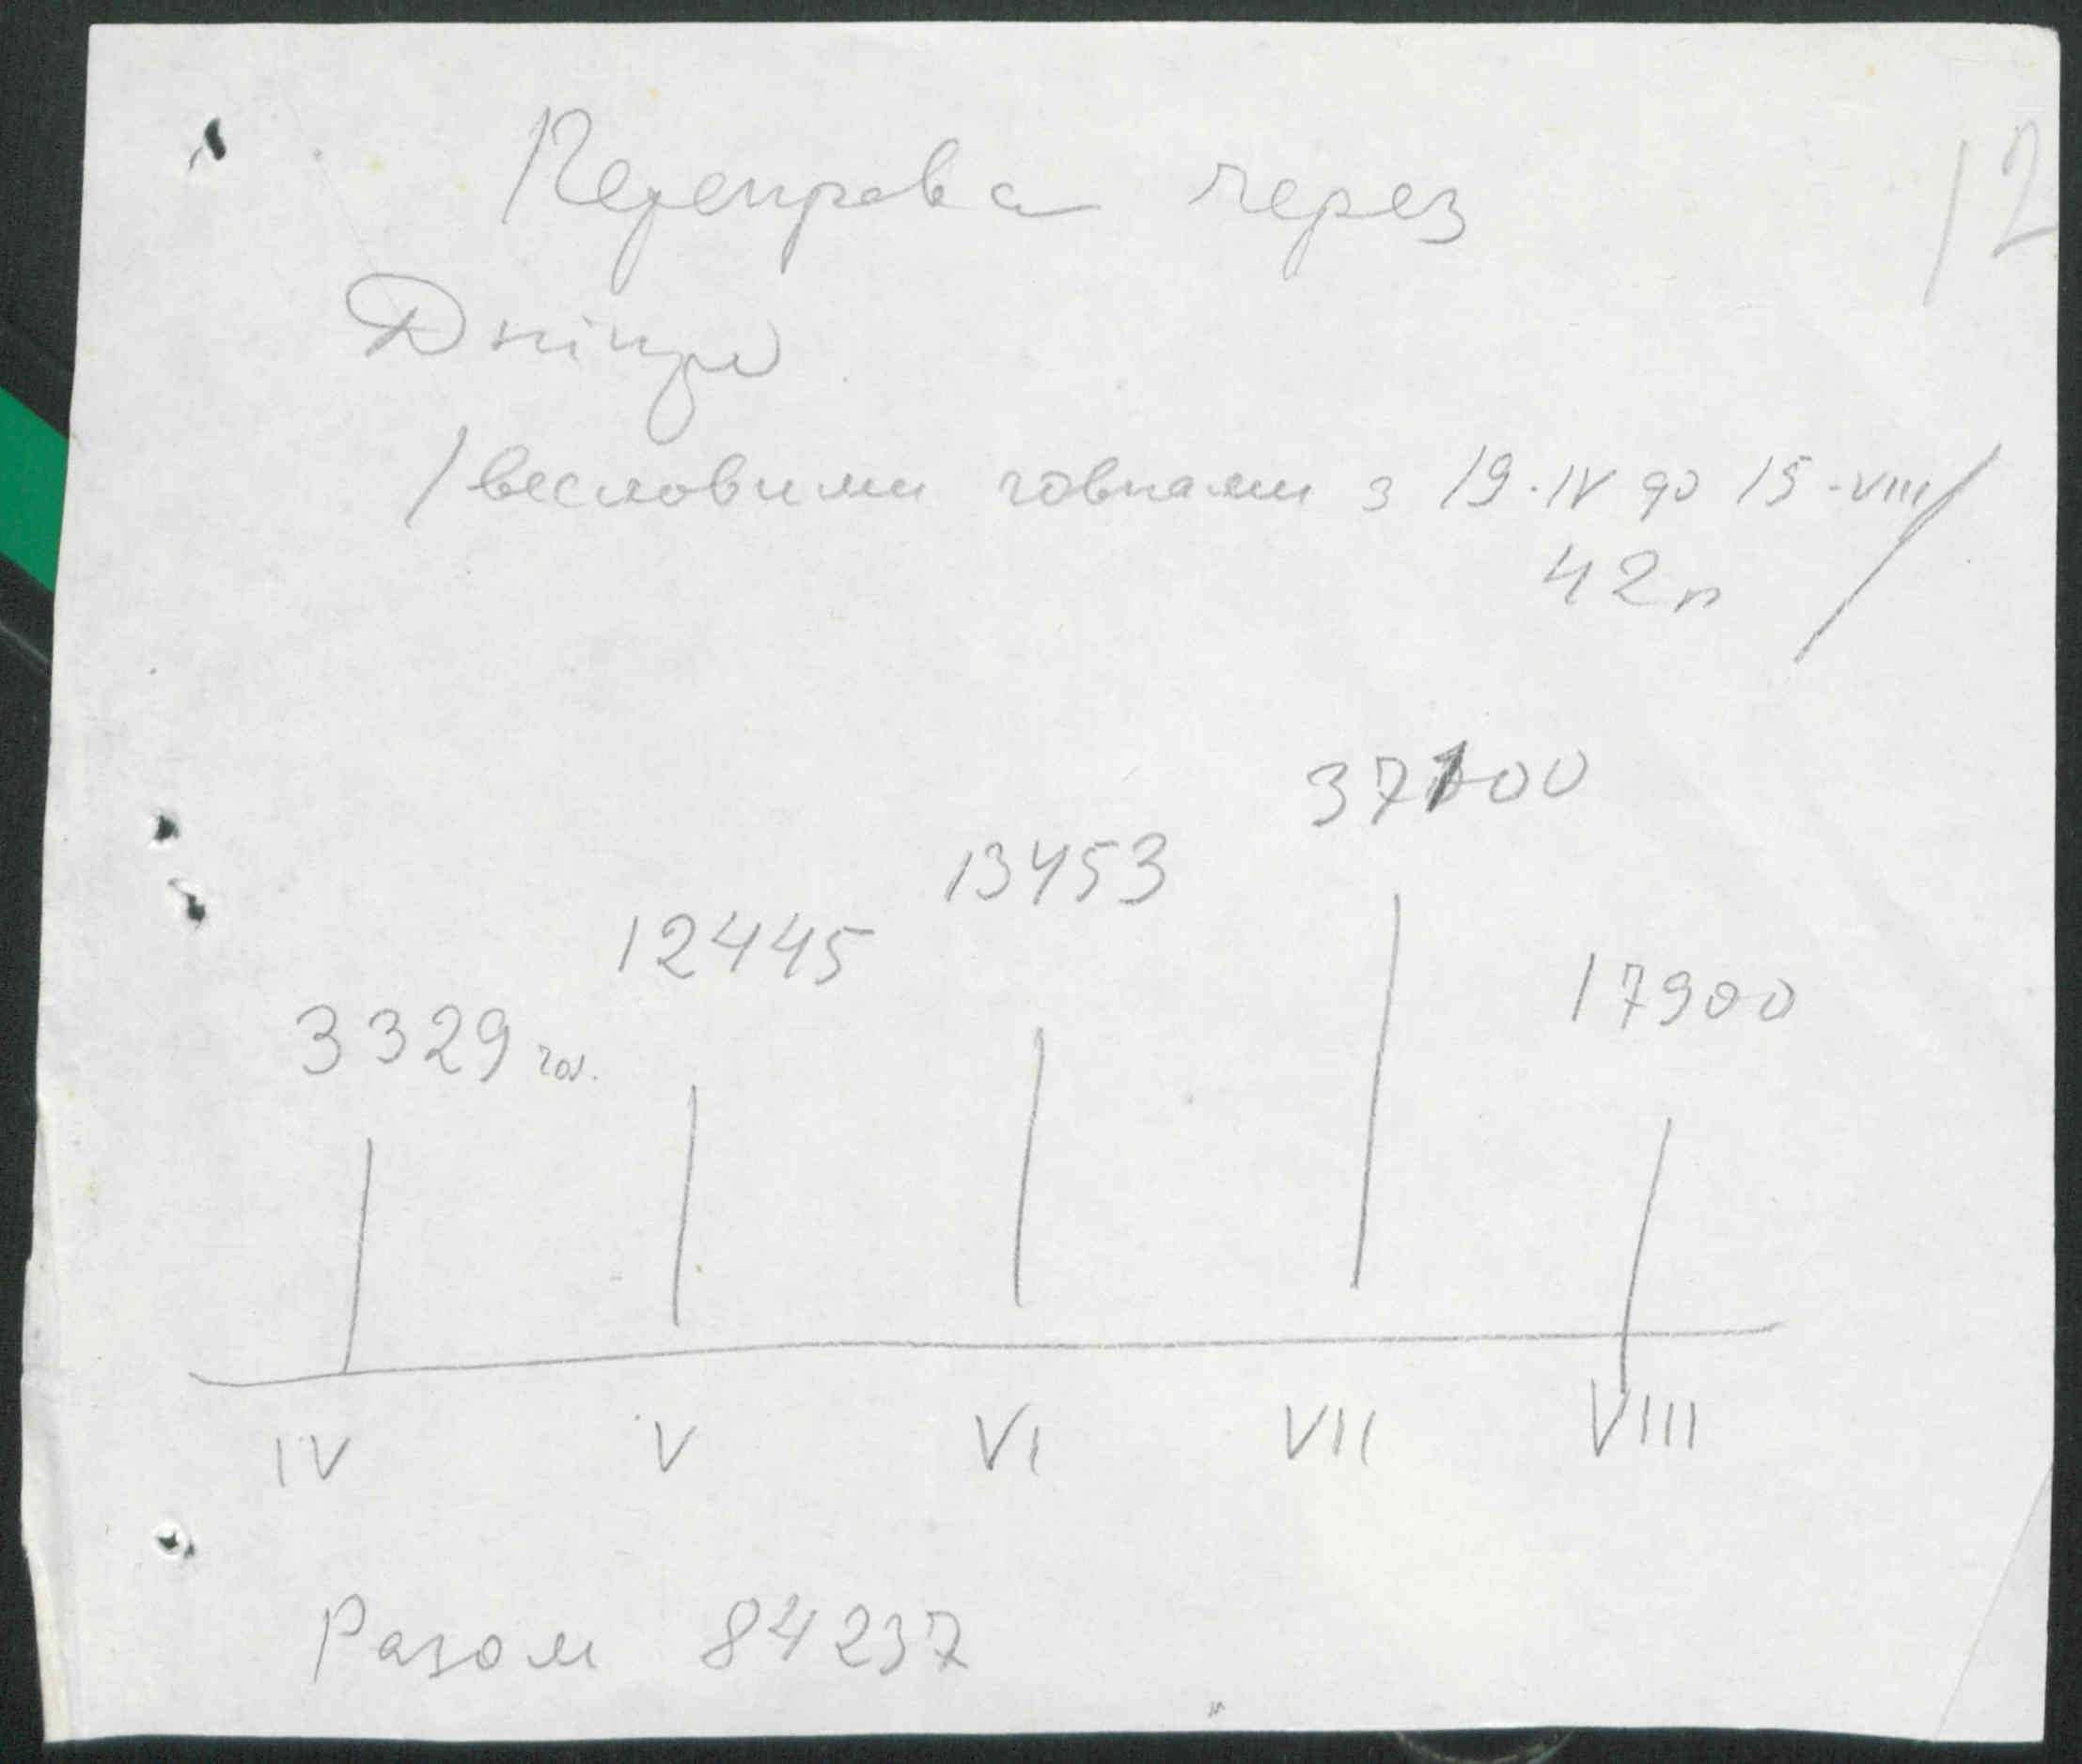 12
Переправа через
Дніпро
/весловими човнами з 19.IV до 15-VIII
42 р /
37100
13453
12445
17900
3329 чол.
IV V VI VII VIII
Разом 84237